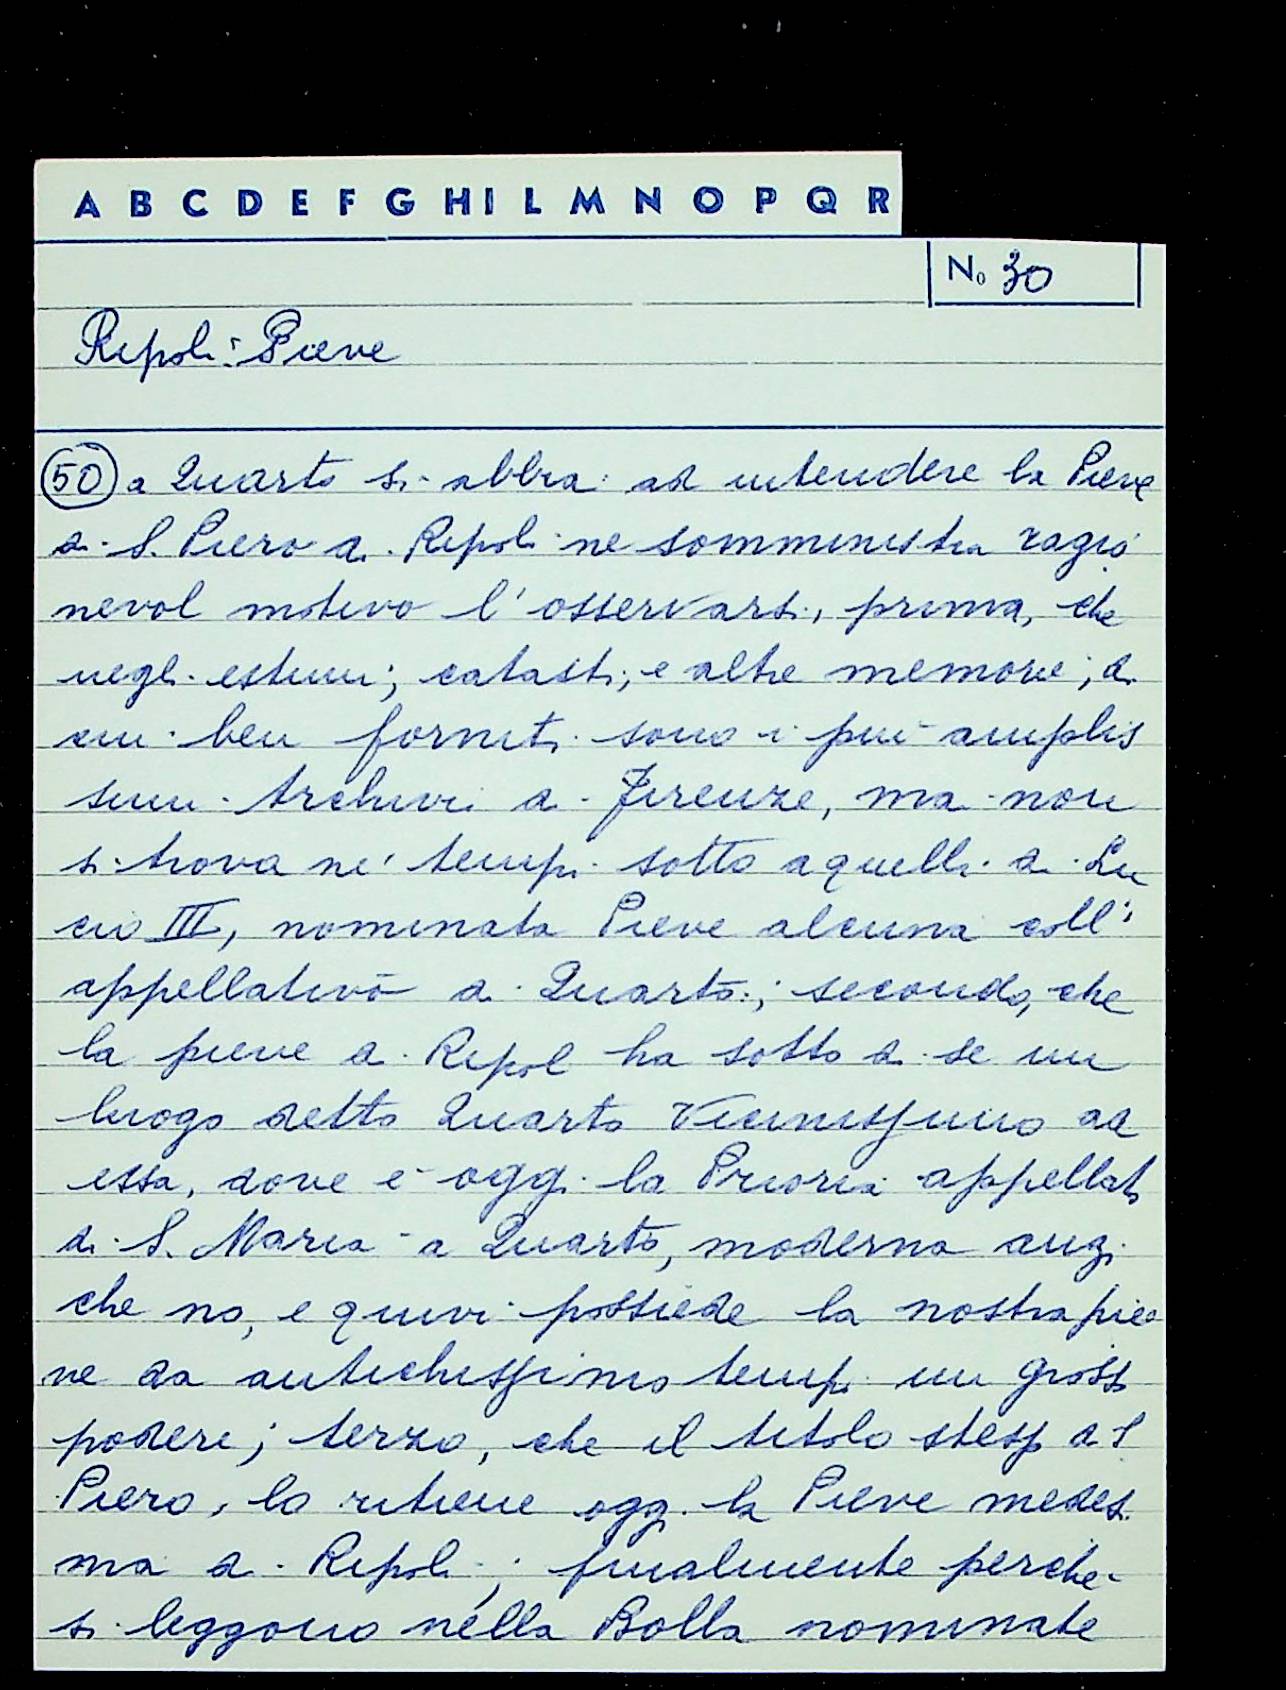 A B C D E F G H I L M N O P Q R
No 30
Ripoli: Pieve
50 a Quarto si abbia ad intendere la Pieve
di S. Piero a Ripoli ne somministra ragio
nevol motivo l'osservarsi, prima, che
negl. estimi, catasti, e altre memorie, di
cui ben forniti sono i più amplis
simi Archivi di Firenze, ma non
si trova ne' tempi sotto a quelli di Lu
cio III, nominata Pieve alcuna coll'
appellativo di Quarto; secondo, che
la pieve a Ripol ha sotto di se un
luogo detto Quarto vicinissimo ad
essa, dove è oggi la Prioria appellat
di S. Maria a Quarto, moderna anzi
che no, e quivi possiede la nostra pie
ne da antichissimo tempi un grosso
podere; terzo, che il titolo stesso di S
Piero, lo ritiene oggi la Pieve medesi
ma di Ripoli; finalmente perchè
si leggono nella Bolla nominate